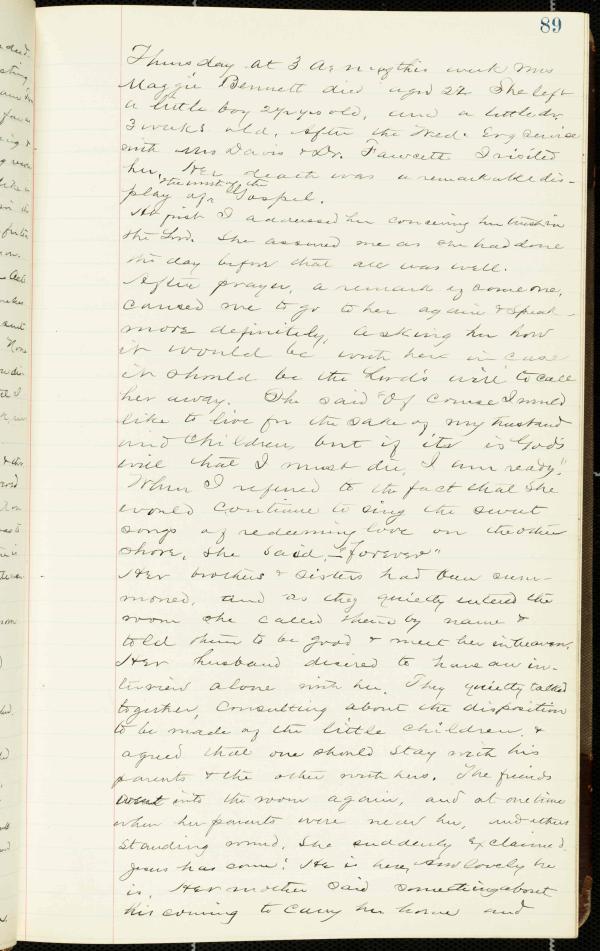 89
Thursday at 3 A.M. of this week Mrs
Maggie Bennett died aged 22. She left
a little boy 2 yrs old, and a little
3 weeks old. After the Wed. Evg service
with Mrs Davis & Dr. Fawcett I visited
her. Her death was a remarkable dis-
play of the Gospel.
At first I addressed her concerning her trust in
the Lord. She assured me as she had done
the day before that all was well.
After prayer, a remark of some one,
caused me to go to her again & speak
more definitely, asking her how
it would be with her in case
it should be the Lord's will to call
her away. She said "Of course I would
like to live for the sake of my husband
and children, but if it is God's
will that I must die, I am ready."
When I referred to the fact that she
would continue to sing the sweet
songs of redeeming love on the other
shore, she said, "forever"
Her brothers & sisters had been sum-
moned, and as they quietly entered the
room she called them by name &
told them to be good & meet her in heaven.
Her husband desired to have an in-
terview alone with her. They quietly talked
together, consulting about the disposition
to be made of the little children, &
agreed that one should stay with his
parents & the other with hers. The friends
went into the room again, and at one time
when her parents were near her, and others
standing round, she suddenly exclaimed,
Jesus has come! He is here, how lovely he
is. Her mother said something about
his coming to carry her home and